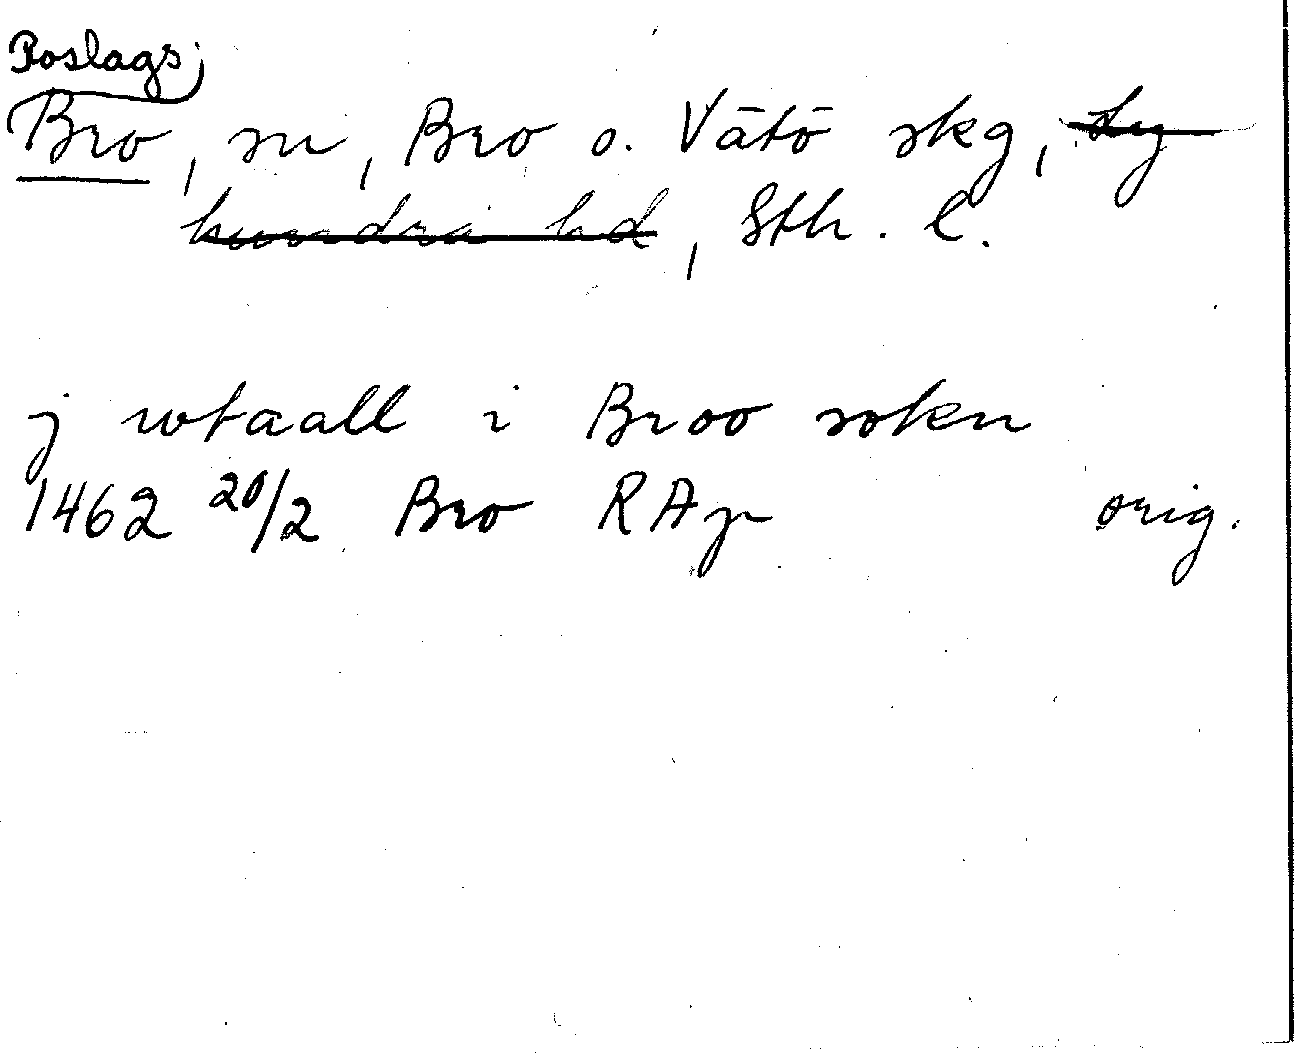 Roslags
Bro, sn, Bro o. Vätö skg, Ly
hundra hd, Sth. l.
j rotaall i Broo sokn
1462 20/2 Bro RAp orig.